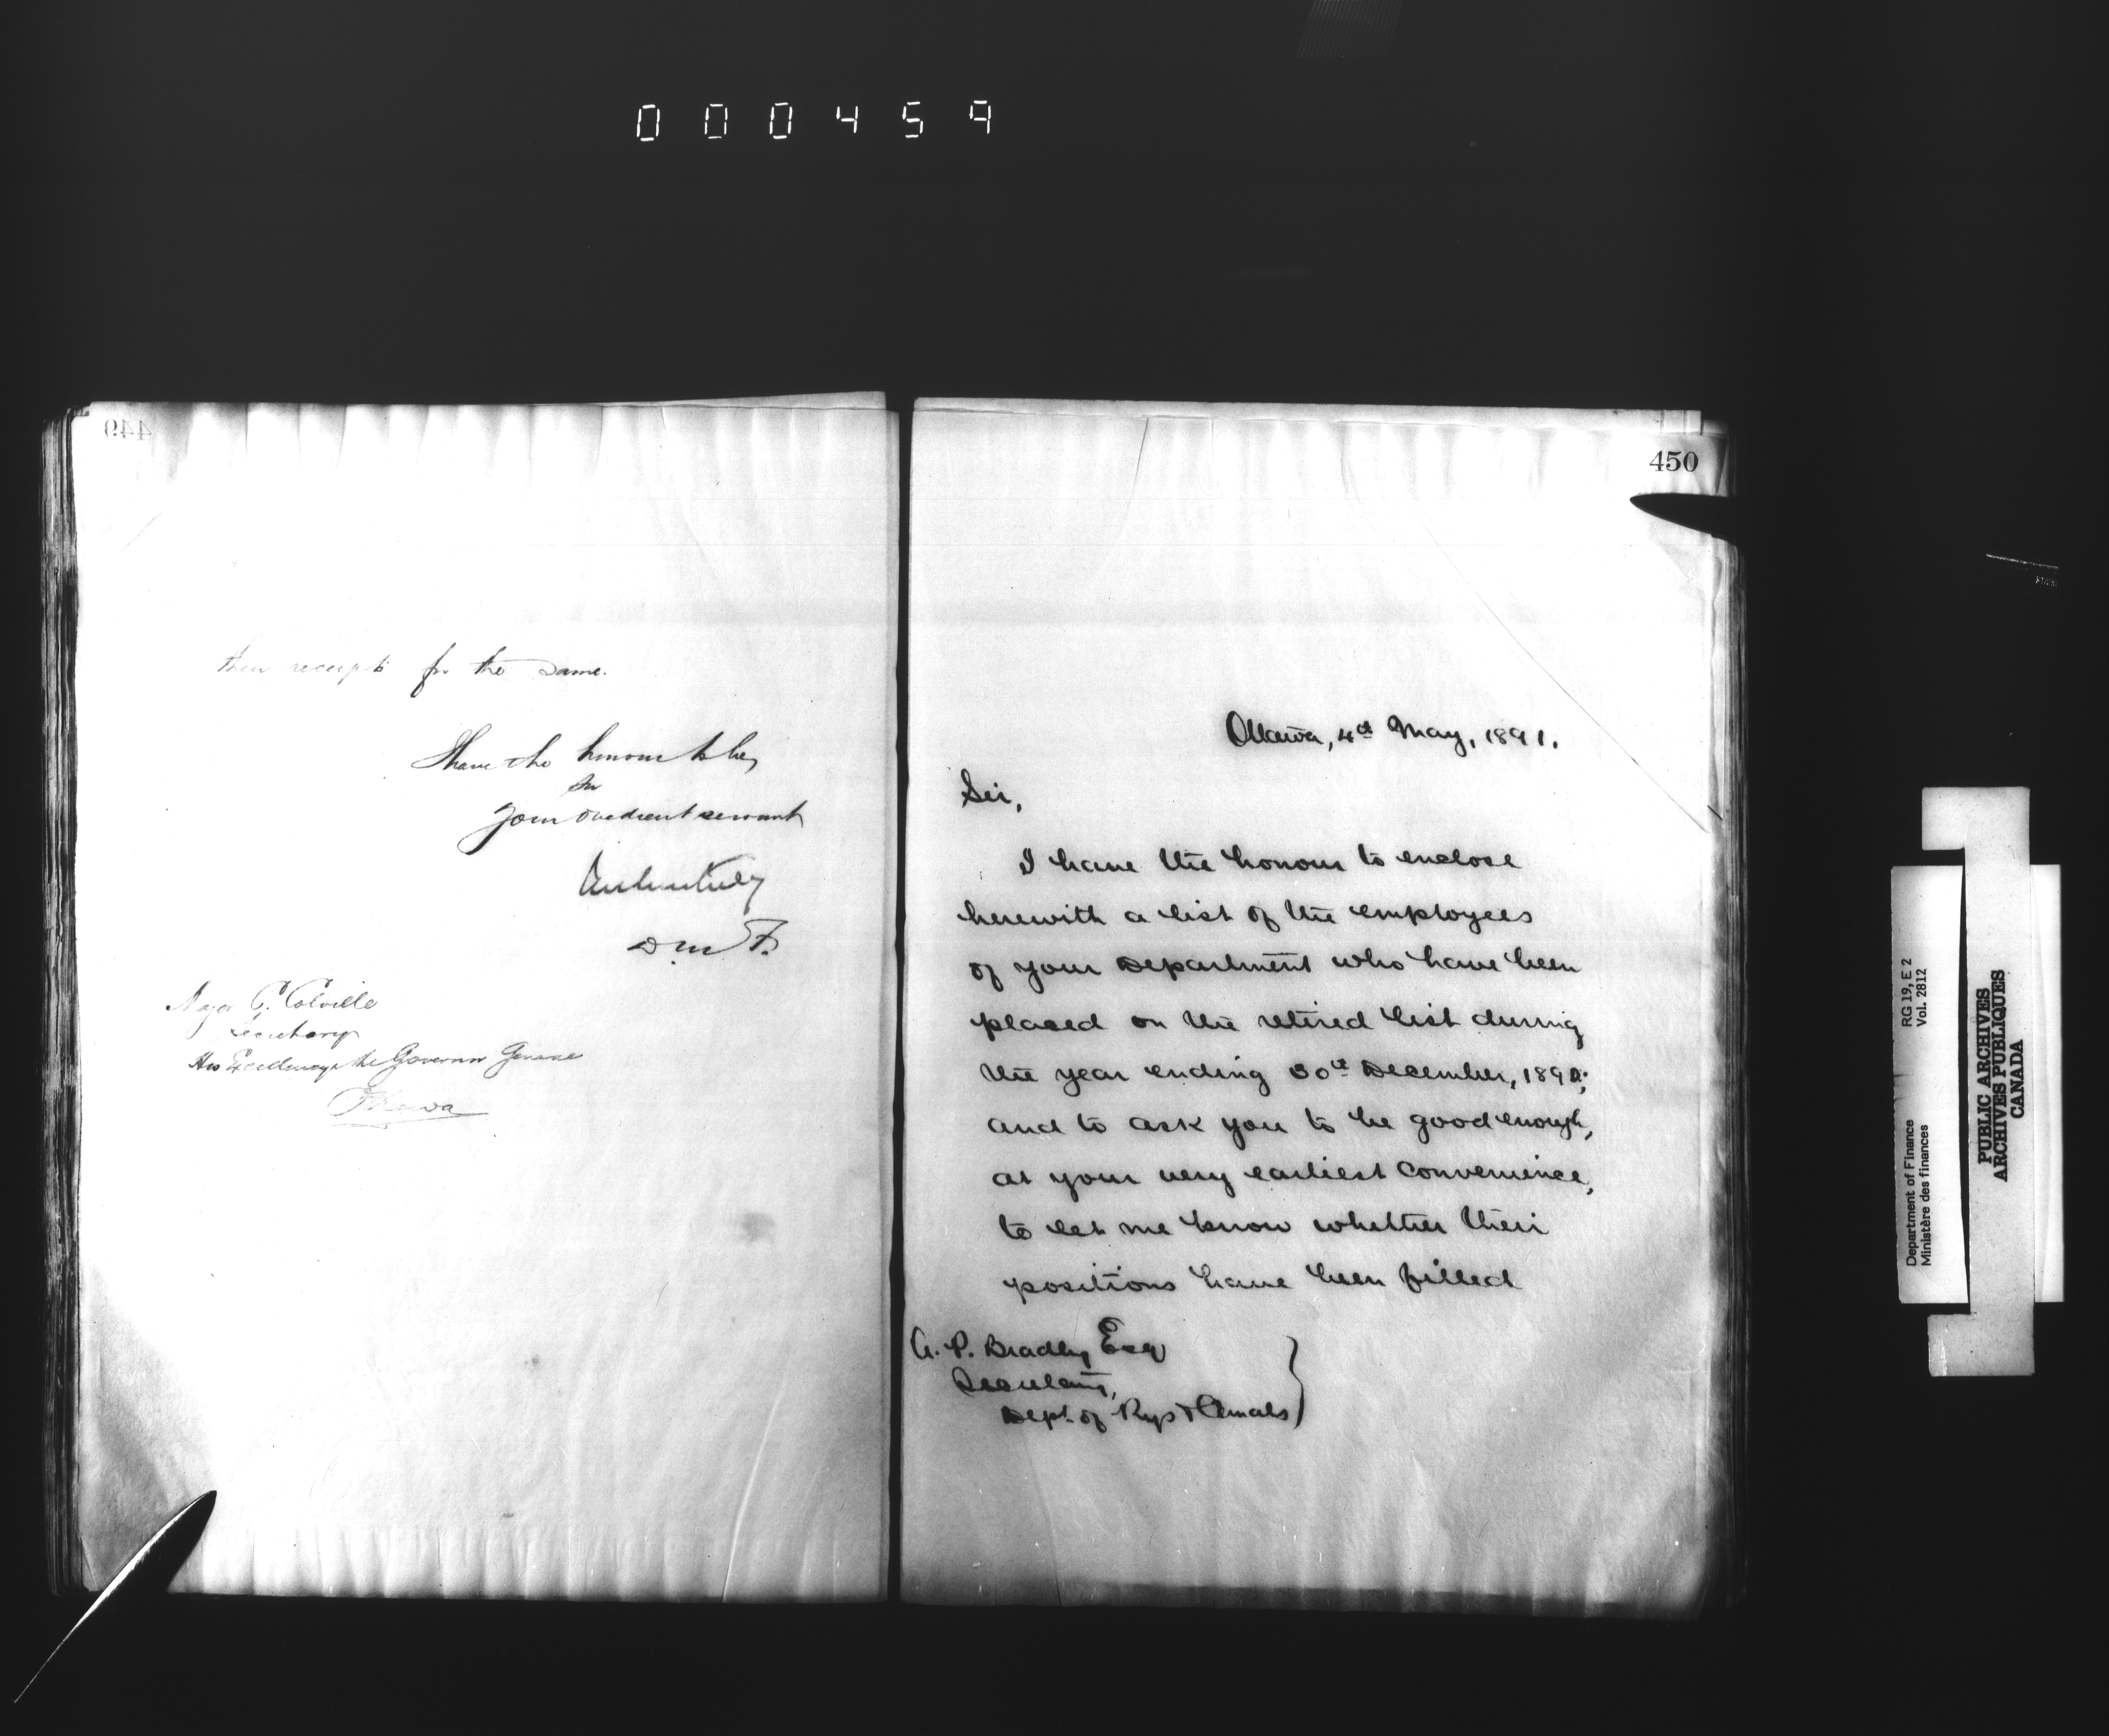 000459
449
their receipts for the same.
I have the honour to be,
Sir
Your obedient servant
D. M. F.
Major C. Colville
Secretary
His Excellency the Governor General
Ottawa
450
Ottawa, 4th May, 1891.
Sir,
I have the honour to enclose
herewith a list of the employees
of your Department who have been
placed on the retired list during
the year ending 30th December, 1890;
and to ask you to be good enough,
at your very earliest convenience,
to let me know whether their
positions have been filled
A. P. Bradley Esq
Secretary,
Dept. of Rys & Canals
RG 19, E 2
Vol. 2812
Department of Finance
Ministère des finances
PUBLIC ARCHIVES
ARCHIVES PUBLIQUES
CANADA